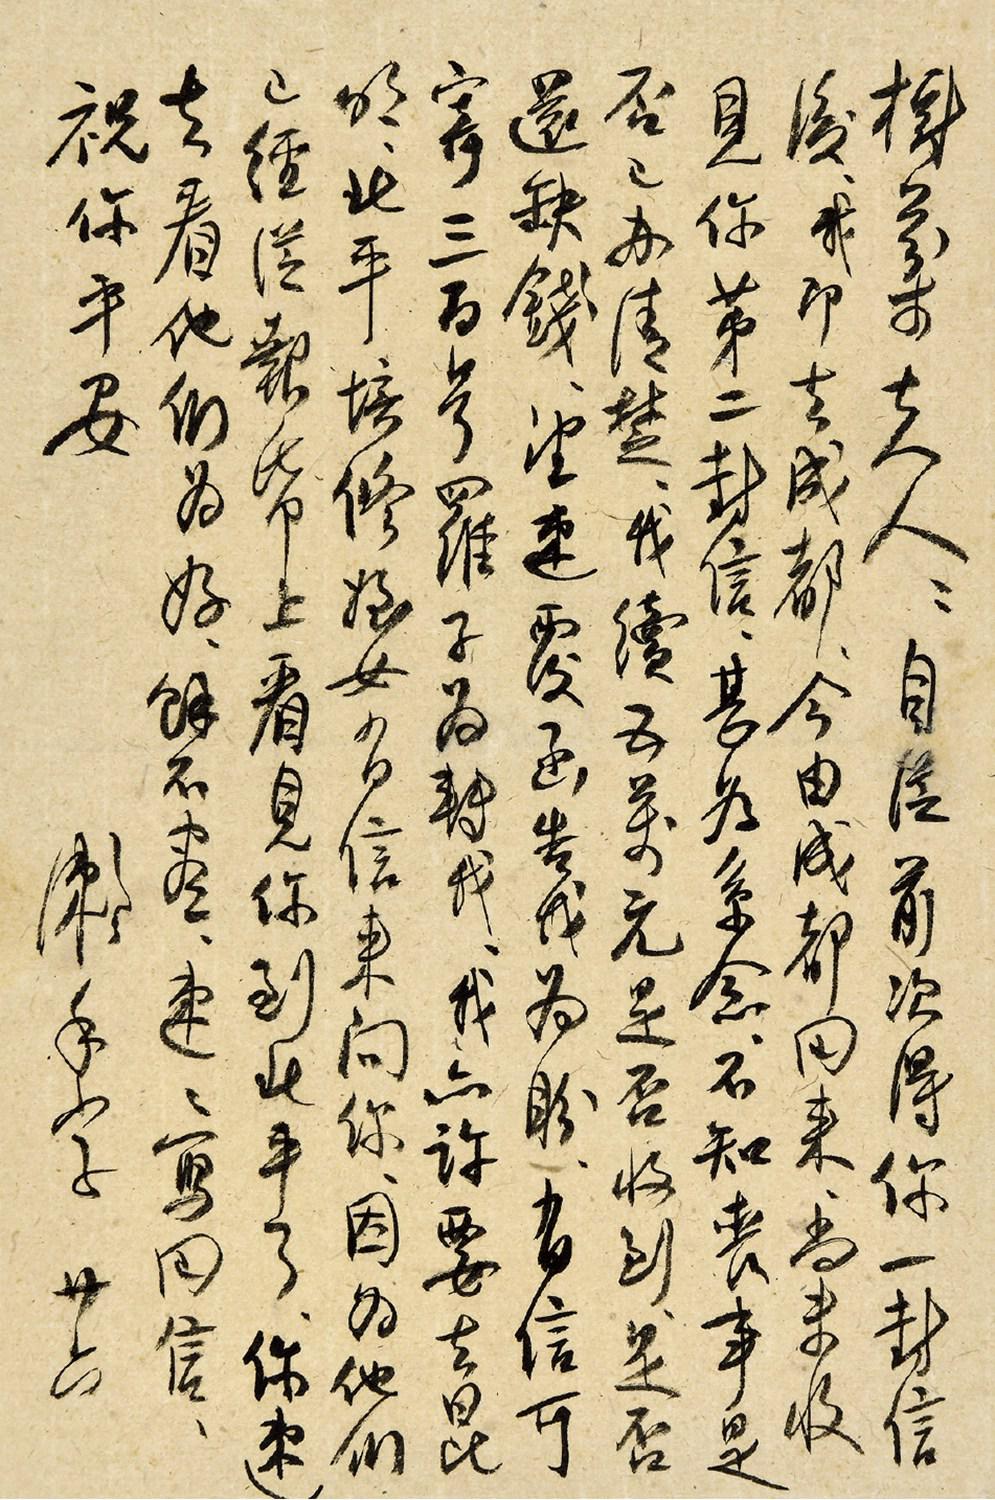 樹芬夫人：自從前次得你一封信
後、我即去成都、今由成都回來、尚未收
見你第二封信、甚為系念、不知喪事是
否已办清楚、我續五萬元是否收到、是否
還缺錢、望速覆函告我為盼、有信可
寄三百号羅子為轉我、我亦許要去昆
明、北平培修姪女有信來問你、因為他們
已經從報帋上看見你到北平了、你速
去看他們為好、餘不盡、速、寫回信、
祝你平安
漱 手字 廿六